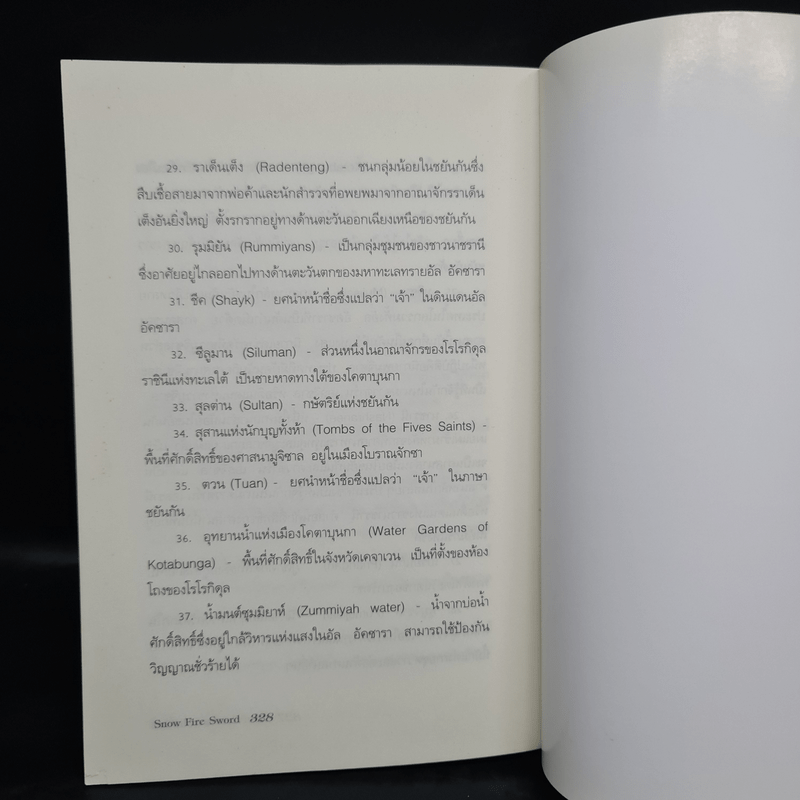 29. ราเด็นเต็ง (Radenteng) - ชนกลุ่มน้อยในชยันกันซึ่ง
สืบเชื้อสายมาจากพ่อค้าและนักสำรวจที่อพยพมาจากอาณาจักรราเด็น
เต็งอันยิ่งใหญ่ ตั้งรกรากอยู่ทางด้านตะวันออกเฉียงเหนือของชยันกัน
30. รุมมิยัน (Rummiyans) - เป็นกลุ่มชุมชนของชาวนาชรานี
ซึ่งอาศัยอยู่ไกลออกไปทางด้านตะวันตกของมหาทะเลทรายอัล อัคซารา
31. ชีค (Shayk) - ยศนำหน้าชื่อซึ่งแปลว่า “เจ้า” ในดินแดนอัล
อัคซารา
32. ซีลูมาน (Siluman) - ส่วนหนึ่งในอาณาจักรของโรโรกิดุล
ราชินีแห่งทะเลใต้ เป็นชายหาดทางใต้ของโคตาบุนกา
33. สุลต่าน (Sultan) - กษัตริย์แห่งชยันกัน
34. สุสานแห่งนักบุญทั้งห้า (Tombs of the Fives Saints) -
พื้นที่ศักดิ์สิทธิ์ของศาสนามูจิซาล อยู่ในเมืองโบราณจักซา
35. ตวน (Tuan) - ยศนำหน้าชื่อซึ่งแปลว่า “เจ้า” ในภาษา
ชยันกัน
36. อุทยานน้ำแห่งเมืองโคตาบุนกา (Water Gardens of
Kotabunga) - พื้นที่ศักดิ์สิทธิ์ในจังหวัดเคจาเวน เป็นที่ตั้งของห้อง
โถงของโรโรกิดุล
37. น้ำมนต์ซุมมิยาห์ (Zummiyah water) - น้ำจากบ่อน้ำ
ศักดิ์สิทธิ์ซึ่งอยู่ใกล้วิหารแห่งแสงในอัล อัคซารา สามารถใช้ป้องกัน
วิญญาณชั่วร้ายได้
Snow Fire Sword 328